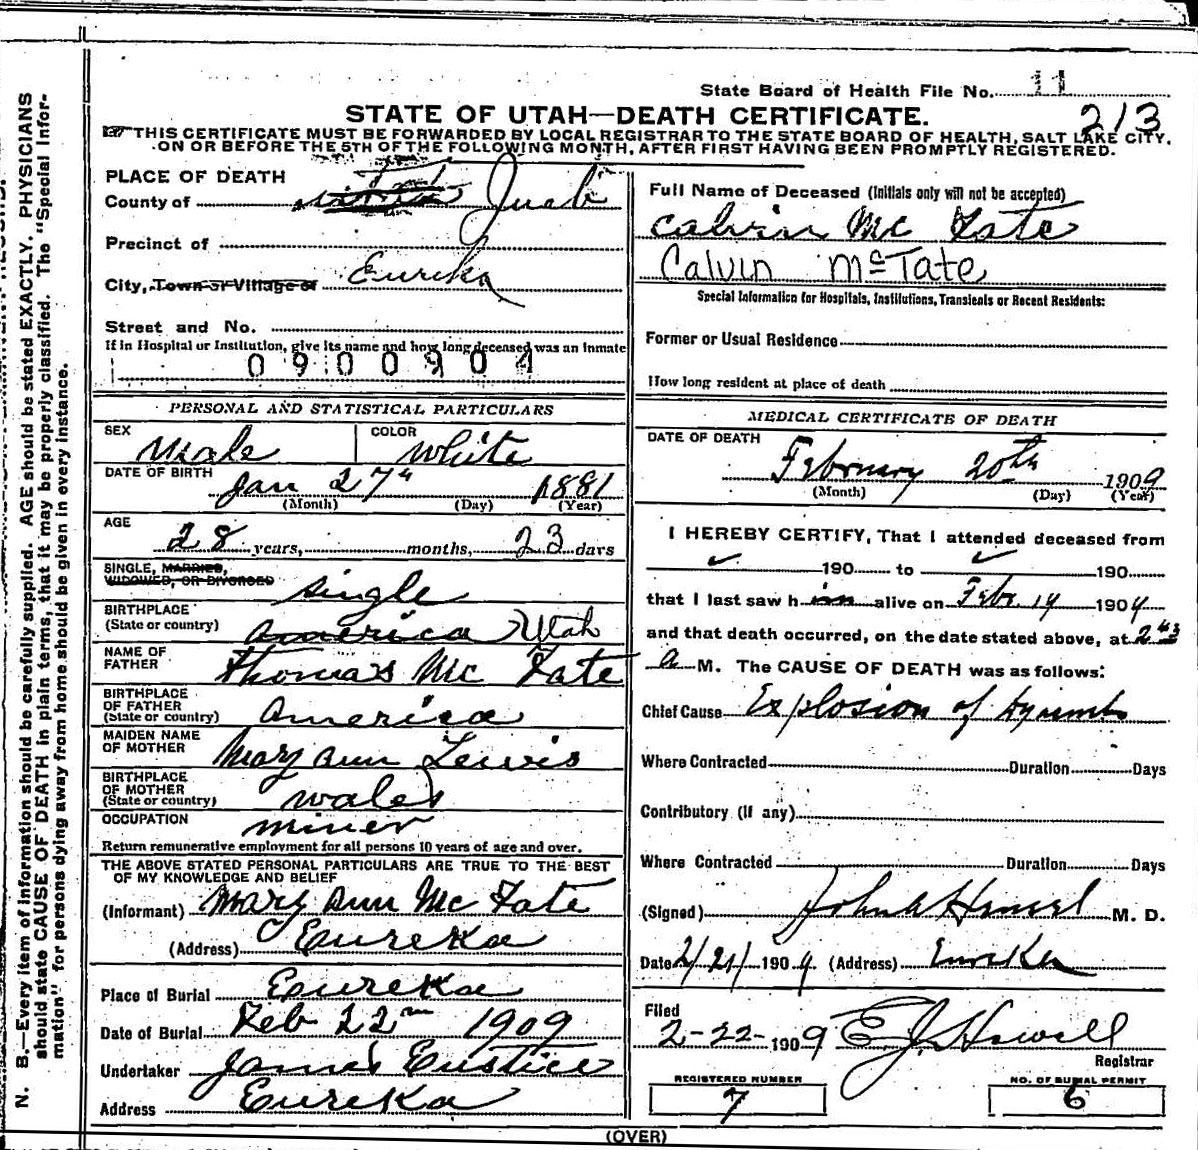 State Board of Health File No. 11
213
STATE OF UTAH—DEATH CERTIFICATE.
THIS CERTIFICATE MUST BE FORWARDED BY LOCAL REGISTRAR TO THE STATE BOARD OF HEALTH, SALT LAKE CITY,
ON OR BEFORE THE 5TH OF THE FOLLOWING MONTH, AFTER FIRST HAVING BEEN PROMPTLY REGISTERED.
N. B.—Every item of information should be carefully supplied. AGE should be stated EXACTLY. PHYSICIANS
should state CAUSE OF DEATH in plain terms, that it may be properly classified. The "Special Infor-
mation" for persons dying away from home should be given in every instance.
PLACE OF DEATH
County of Juab
Precinct of
City, Town or Village of Eureka
Street and No.
If in Hospital or Institution, give its name and how long deceased was an inmate
0900904
PERSONAL AND STATISTICAL PARTICULARS
SEX Male COLOR White
DATE OF BIRTH Jan 27th 1881
(Month) (Day) (Year)
AGE 28 years, months, 23 days
SINGLE, MARRIED,
WIDOWED, OR DIVORCED Single
BIRTHPLACE
(State or country) America Utah
NAME OF
FATHER Thomas Mc Tate
BIRTHPLACE
OF FATHER
(State or country) America
MAIDEN NAME
OF MOTHER Mary Ann Lewis
BIRTHPLACE
OF MOTHER
(State or country) Wales
OCCUPATION miner
Return remunerative employment for all persons 10 years of age and over.
THE ABOVE STATED PERSONAL PARTICULARS ARE TRUE TO THE BEST
OF MY KNOWLEDGE AND BELIEF
(Informant) Mary Ann Mc Tate
(Address) Eureka
Place of Burial Eureka
Date of Burial Feb 22nd 1909
Undertaker James Eustice
Address Eureka
Full Name of Deceased (Initials only will not be accepted)
Calvin Mc Tate
Calvin McTate
Special Information for Hospitals, Institutions, Transients or Recent Residents:
Former or Usual Residence
How long resident at place of death
MEDICAL CERTIFICATE OF DEATH
DATE OF DEATH
February 20th 1909
(Month) (Day) (Year)
I HEREBY CERTIFY, That I attended deceased from
✓ 190 to ✓ 190
that I last saw him alive on Febr. 19 1909
and that death occurred, on the date stated above, at 2 43
a M. The CAUSE OF DEATH was as follows:
Chief Cause Explosion of
Where Contracted Duration Days
Contributory (if any)
Where Contracted Duration Days
(Signed) M. D.
Date 2/21/ 1909. (Address) Eureka
Filed
2-22-1909 E. J. Howell
Registrar
REGISTERED NUMBER
7
NO. OF BURIAL PERMIT
6
(OVER)